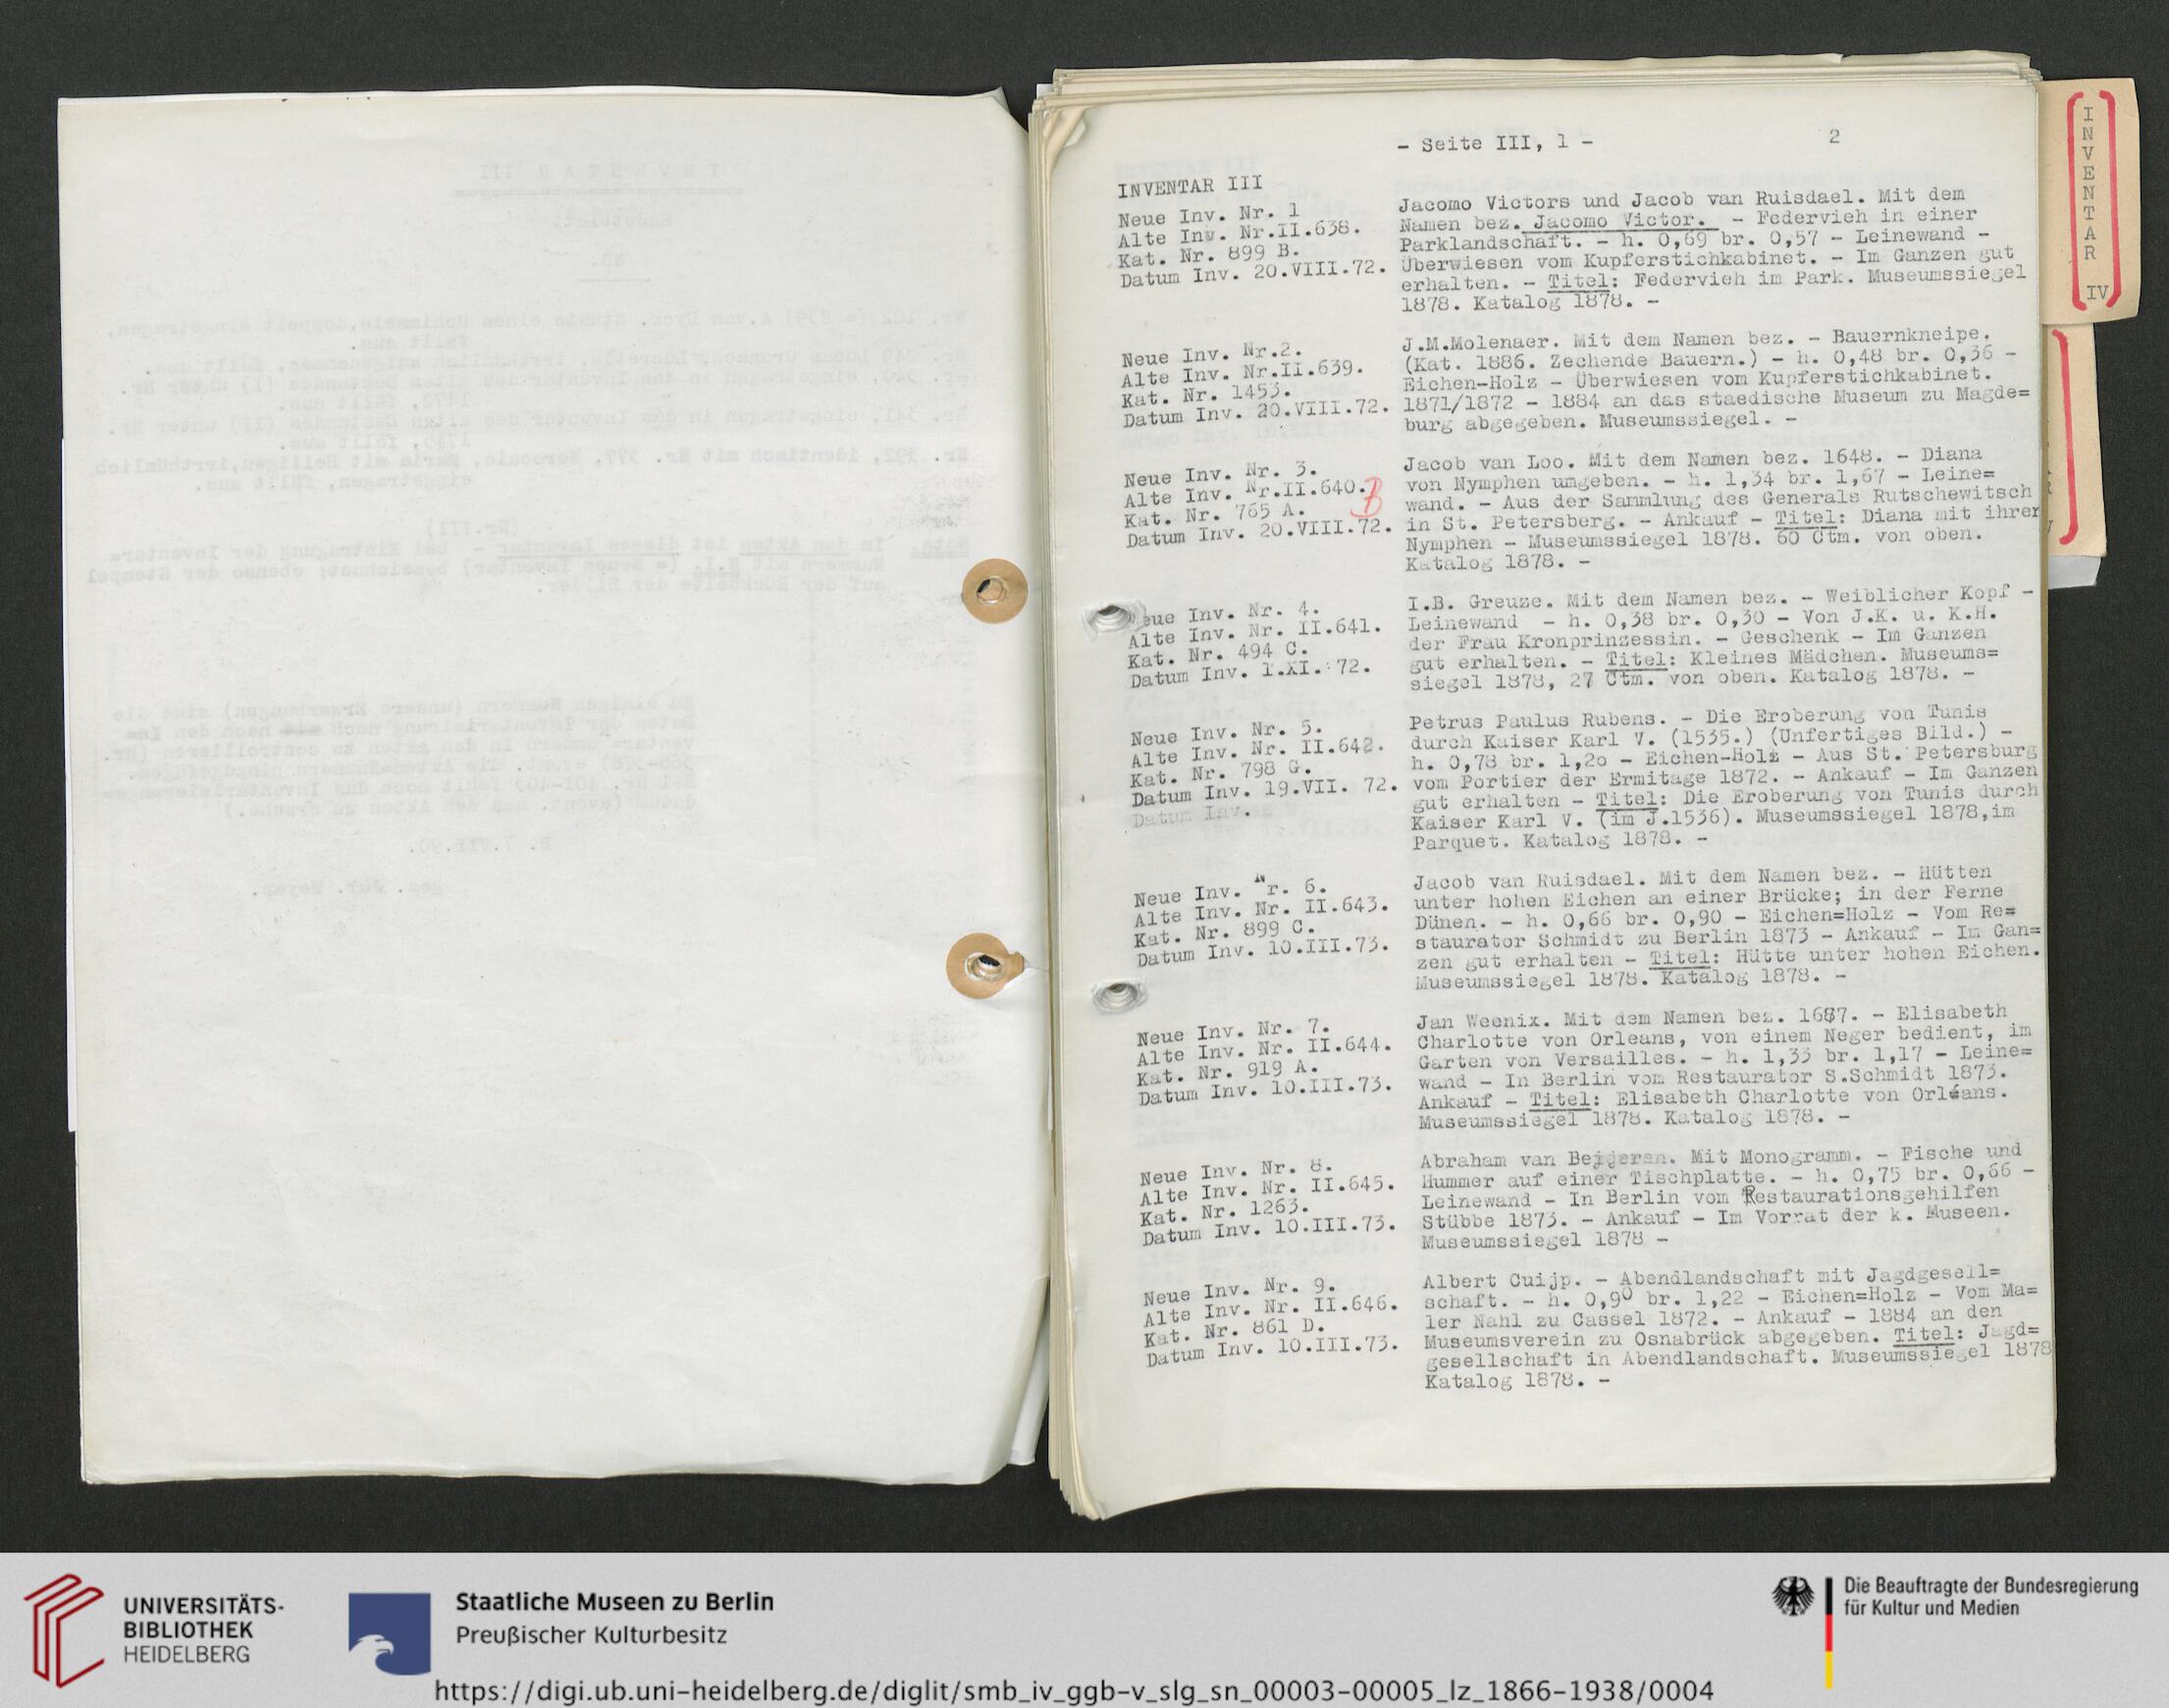 - Seite III, 1 -
2
INVENTAR III
Neue Inv. Nr. 1
Alte Inv. Nr.II.638.
Kat. Nr. 899 B.
Datum Inv. 20.VIII.72.
Jacomo Victors und Jacob van Ruisdael. Mit dem
Namen bez. Jacomo Victor. - Federvieh in einer
Parklandschaft. - h. 0,69 br. 0,57 - Leinewand -
Überwiesen vom Kupferstichkabinet. - Im Ganzen gut
erhalten. - Titel: Federvieh im Park. Museumssiegel
1878. Katalog 1878. -
Neue Inv. Nr.2.
Alte Inv. Nr.II.639.
Kat. Nr. 1453.
Datum Inv. 20.VIII.72.
J.M.Molenaer. Mit dem Namen bez. - Bauernkneipe.
(Kat. 1886. Zechende Bauern.) - h. 0,48 br. 0,36 -
Eichen-Holz - Überwiesen vom Kupferstichkabinet.
1871/1872 - 1884 an das staedische Museum zu Magde=
burg abgegeben. Museumssiegel. -
Neue Inv. Nr. 3.
Alte Inv. Nr.II.640.
Kat. Nr. 765 A.
Datum Inv. 20.VIII.72.
Jacob van Loo. Mit dem Namen bez. 1648. - Diana
von Nymphen umgeben. - h. 1,34 br. 1,67 - Leine=
wand. - Aus der Sammlung des Generals Rutschewitsch
in St. Petersberg. - Ankauf - Titel: Diana mit ihren
Nymphen - Museumssiegel 1878. 60 Ctm. von oben.
Katalog 1878. -
eue Inv. Nr. 4.
Alte Inv. Nr. II.641.
Kat. Nr. 494 C.
Datum Inv. 1.XI. 72.
I.B. Greuze. Mit dem Namen bez. - Weiblicher Kopf -
Leinewand - h. 0,38 br. 0,30 - Von J.K. u. K.H.
der Frau Kronprinzessin. - Geschenk - Im Ganzen
gut erhalten. - Titel: Kleines Mädchen. Museums=
siegel 1878, 27 Ctm. von oben. Katalog 1878. -
Neue Inv. Nr. 5.
Alte Inv. Nr. II.642.
Kat. Nr. 798 G.
Datum Inv. 19.VII. 72.
Datum Inv.
Petrus Paulus Rubens. - Die Eroberung von Tunis
durch Kaiser Karl V. (1535.) (Unfertiges Bild.) -
h. 0,78 br. 1,20 - Eichen-Holz - Aus St. Petersburg
vom Portier der Ermitage 1872. - Ankauf - Im Ganzen
gut erhalten - Titel: Die Eroberung von Tunis durch
Kaiser Karl V. (im J.1536). Museumssiegel 1878,im
Parquet. Katalog 1878. -
Neue Inv. Nr. 6.
Alte Inv. Nr. II.643.
Kat. Nr. 899 C.
Datum Inv. 10.III.73.
Jacob van Ruisdael. Mit dem Namen bez. - Hütten
unter hohen Eichen an einer Brücke; in der Ferne
Dünen. - h. 0,66 br. 0,90 - Eichen=Holz - Vom Re=
staurator Schmidt zu Berlin 1873 - Ankauf - Im Gan=
zen gut erhalten - Titel: Hütte unter hohen Eichen.
Museumssiegel 1878. Katalog 1878. -
Neue Inv. Nr. 7.
Alte Inv. Nr. II.644.
Kat. Nr. 919 A.
Datum Inv. 10.III.73.
Jan Weenix. Mit dem Namen bez. 1687. - Elisabeth
Charlotte von Orleans, von einem Neger bedient, im
Garten von Versailles. - h. 1,33 br. 1,17 - Leine=
wand - In Berlin vom Restaurator S.Schmidt 1873.
Ankauf - Titel: Elisabeth Charlotte von Orléans.
Museumssiegel 1878. Katalog 1878. -
Neue Inv. Nr. 8.
Alte Inv. Nr. II.645.
Kat. Nr. 1263.
Datum Inv. 10.III.73.
Abraham van Beijeren. Mit Monogramm. - Fische und
Hummer auf einer Tischplatte. - h. 0,75 br. 0,66 -
Leinewand - In Berlin vom Restaurationsgehilfen
Stübbe 1873. - Ankauf - Im Vorrat der k. Museen.
Museumssiegel 1878 -
Neue Inv. Nr. 9.
Alte Inv. Nr. II.646.
Kat. Nr. 861 D.
Datum Inv. 10.III.73.
Albert Cuijp. - Abendlandschaft mit Jagdgesell=
schaft. - h. 0,90 br. 1,22 - Eichen=Holz - Vom Ma=
ler Nahl zu Cassel 1872. - Ankauf - 1884 an den
Museumsverein zu Osnabrück abgegeben. Titel: Jagd=
gesellschaft in Abendlandschaft. Museumssiegel 1878
Katalog 1878. -
INVENTAR IV
UNIVERSITÄTS-
BIBLIOTHEK
HEIDELBERG
Staatliche Museen zu Berlin
Preußischer Kulturbesitz
Die Beauftragte der Bundesregierung
für Kultur und Medien
https://digi.ub.uni-heidelberg.de/diglit/smb_iv_ggb-v_slg_sn_00003-00005_lz_1866-1938/0004